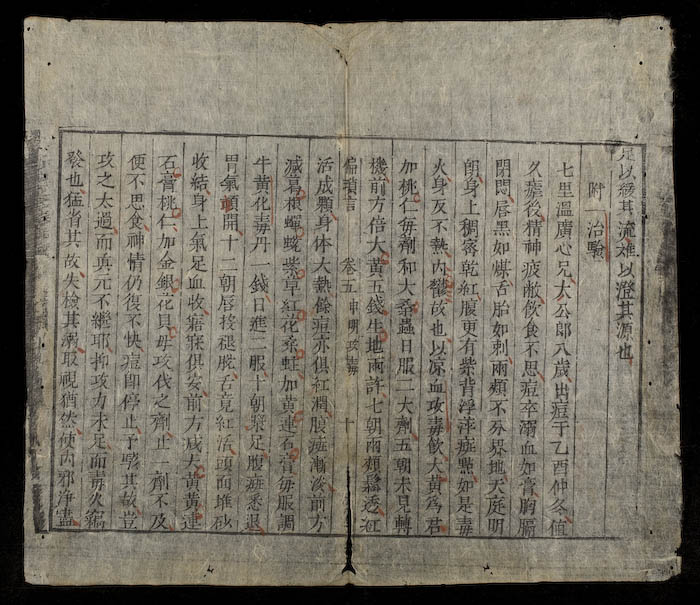 足以緩其流難以澄其源也
附 治驗
七里溫廣心兄大公郎八歲出痘于乙酉仲冬值
久瘧後精神疲敝飲食不思痘卒溺血如膏胸膈
閉悶唇黑如煤舌胎如刺兩頰不分界地天庭明
朗身上稠密乾紅腹更有紫背浮萍症點如是毒
火身反不熱內鬱故也以凉血攻毒飲大黃為君
加桃仁每劑和大桑蟲日服二大劑五朝未見轉
機前方倍大黃五錢生地兩許七朝兩頰鬆透紅
偏瑣言 卷五 申明攻毒 十
活成顆身体大熱餘痘亦俱紅潤腹症漸淡前方
減葛根蟬蛻紫草紅花桑蛀加黃連石膏每服調
牛黃化毒丹一錢日進二服十朝漿足腹症悉退
胃氣頓開十二朝唇接褪脫舌竟紅活頭面堆砂
收結身上氣足血收寤寐俱安前方減大黃黃連
石膏桃仁加金銀花貝母攻伐之劑止一劑不及
便不思食神情仍復不快痘即停止予駭其故豈
攻之太過而眞元不繼耶抑攻力未足而毒火竊
發也猛省其故失檢其瀉取視猶然使內邪淨盡